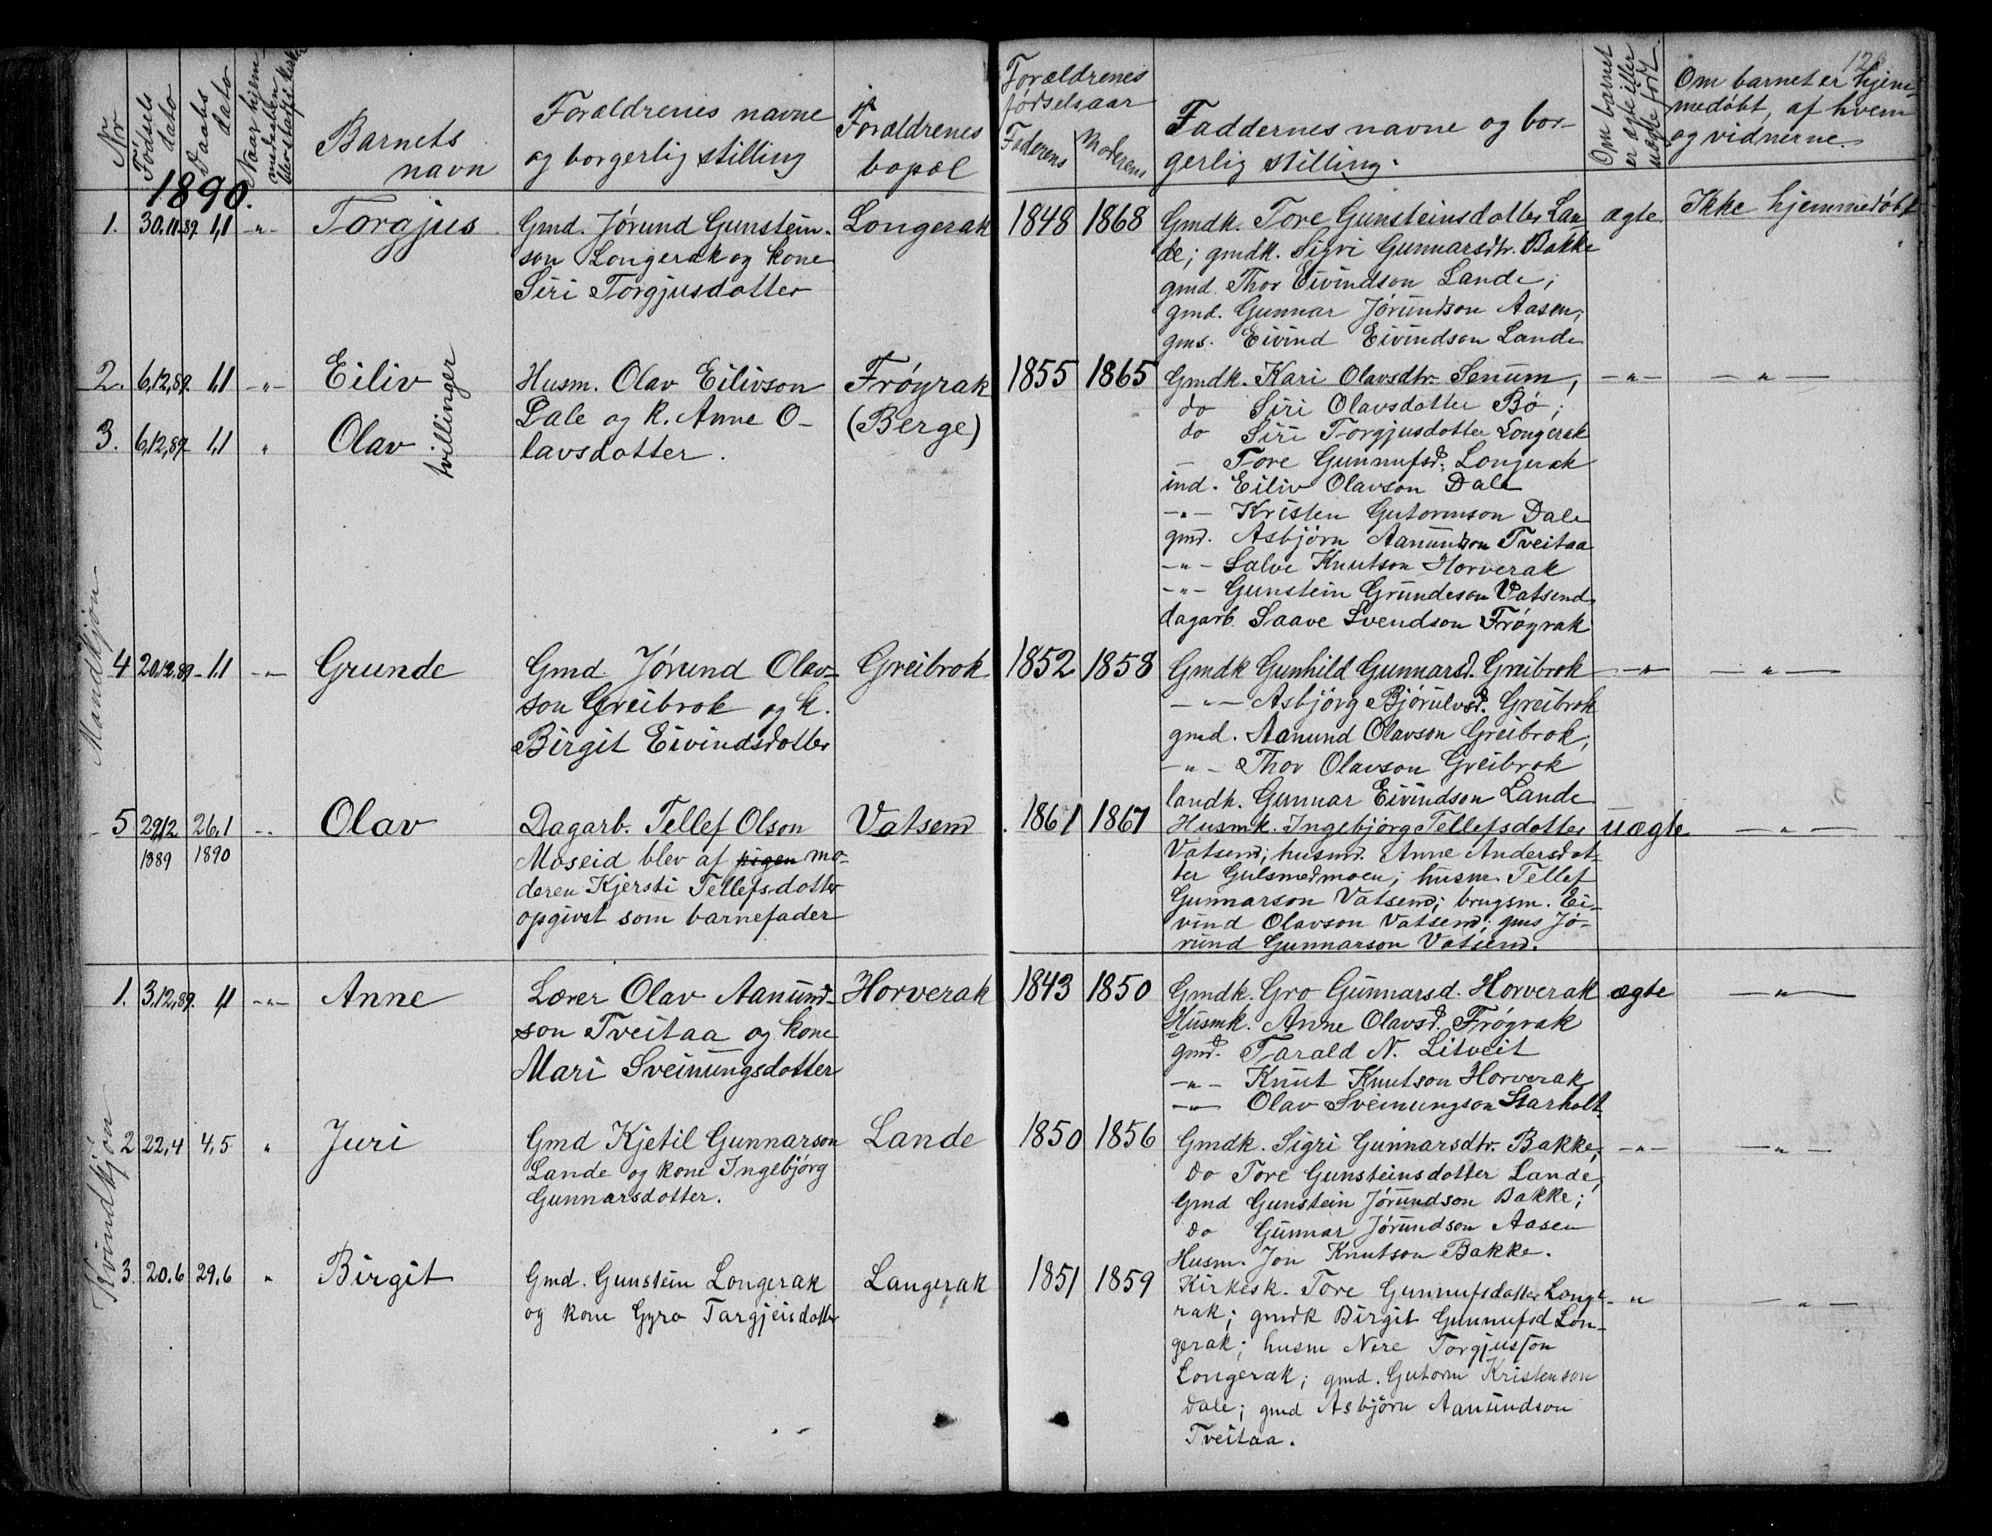 Nr
Fødsels dato
Daabs dato
Naar hjem-
medaaben
blev stadf. i kirken
Barnets
navn
Forældrenes navne
og borgerlig stilling
Forældrenes
bopæl
Forældrenes
fødselsaar
Faderens
Moderens
Faddernes navne og bor-
gerlig stilling.
Om barnet
er ægte eller
uægte født.
Om barnet er hjem-
medøbt, af hvem
og vidnerne.
1890.
Mandkjøn
1. 30.11.89. 1,1 -"- Torgjus
Gmd. Jørund Gunstein-
son Longerak og kone
Siri Torgjusdotter
Longerak
1848 1868
Gmdk. Tore Gunsteinsdotter Lan
de; gmdk. Sigri Gunnarsdtr. Bakke
gmd. Thor Eivindson Lande;
gmd. Gunnar Jørundson Aasen;
gms. Eivind Eivindson Lande
ægte
Ikke hjemmedøbt
2. 6,12,89. 1,1 -"- Eiliv
3. 6,12,89. 1,1 " Olav
tvillinger
Husm. Olav Eilivson
Dale og k. Anne O-
lavsdotter.
Frøyrak
(Berge)
1855 1865
Gmdk. Kari Olavsdtr. Senum,
do Siri Olavsdotter Bø;
do Siri Torgjusdotter Longerak
— Tore Gunnufsd. Longerak
ind. Eiliv Olavson Dale
-"- Kristen Gutormson Dale
gmd. Asbjørn Aanundson Tveitaa
-"- Salve Knutson Horverak
-"- Gunstein Grundeson Vatsend
dagarb. Saave Svendson Frøyrak
-"-
-"-
4 20,12,89. 1,1 -"- Grunde
Gmd Jørund Olav-
son Greibrok og k.
Birgit Eivindsdotter
Greibrok
1852 1858
Gmdk Gunhild Gunnarsd. Greibrok
-"- Asbjørg Bjørulvsd. Greibrok
gmd. Aanund Olavson Greibrok;
-"- Thor Olavson Greibrok
landh. Gunnar Eivindson Lande
-"-
-"-
5 29,12 1889 26,1 1890 -"- Olav
Dagarb. Tellef Olson
Moseid blev af pigen mo-
deren Kjersti Tellefsdotter
opgivet som barnefader
Vatsend
1861 1867
Husmk. Ingebjørg Tellefsdotter
Vatsend; husmd. Anne Andersdot-
ter Gulsmedmoen; husm. Tellef
Gunnarson Vatsend; brugsm. Ei-
vind Olavson Vatsend; gms Jø-
rund Gunnarson Vatsend.
uægte
-"-
Kvindkjøn
1. 3,12,89. 1,1 -"- Anne
Lærer Olav Aanund-
son Tveitaa og kone
Mari Sveinungsdotter
Horverak
1843 1850
Gmdk. Gro Gunnarsd. Horverak
Husmk. Anne Olavsd. Frøyrak
gmd. Tarald N. Litveit
-"- Knut Knutson Horverak
-"- Olav Sveinungson Starholt
ægte
-"-
2 22,4 4,5 " Juri
Gmd Kjetil Gunnarson
Lande og kone Ingebjørg
Gunnarsdotter.
Lande
1850 1856
Gmdk. Sigri Gunnarsdtr. Bakke;
do Tore Gunsteinsdotter Lande;
Gmd Gunstein Jørundson Bakke;
do Gunnar Jørundson Aasen
Husm. Jon Knutson Bakke.
-"-
-"-
3. 20.6 29,6 " Birgit
Gmd. Gunstein Longerak
og kone Gyro Targjeisdotter
Langerak
1851 1859
Kirkesk. Tore Gunnufsdotter Longe
rak; gmdk Birgit Gunnufsd Lon-
gerak; husm Nere Torgjusson
Longerak; gmd. Gutorm Kristenson
Dale; gmd Asbjørn Aanundson
Tveitaa.
-"-
-"-